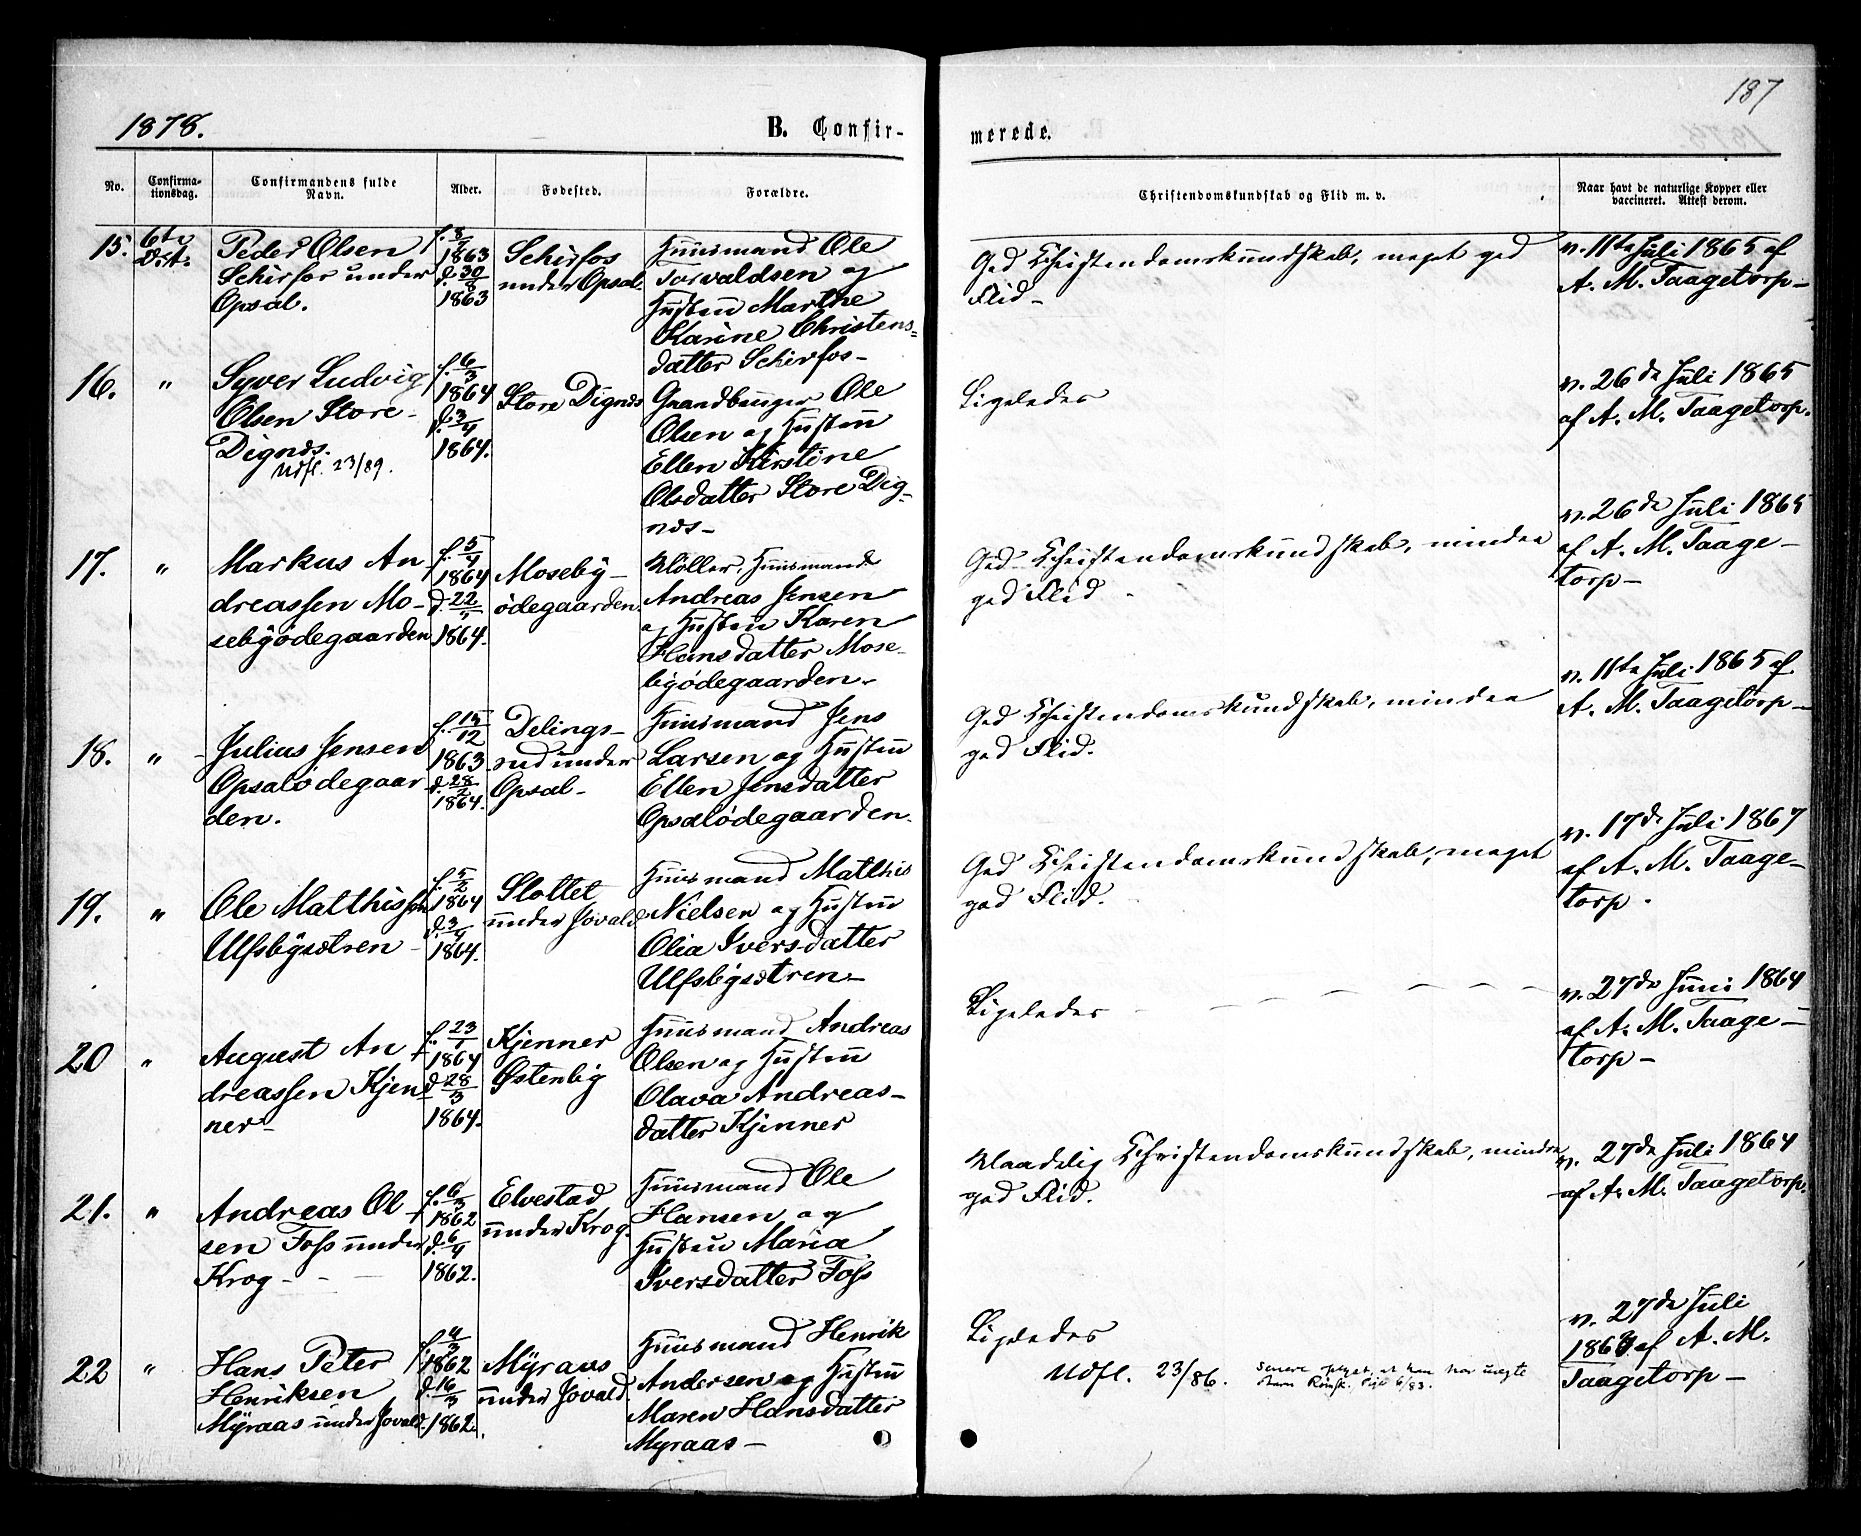 187
1878.
B. Confir-
merede.
No.
Confirma-
tionsdag.
Confirmandens fulde
Navn.
Alder.
Fødested.
Forældre.
Christendomskundskab og Flid m. v.
Naar havt de naturlige Kopper eller
vaccineret. Attest derom.
15.
6te
Oct.
Peder Olsen
Schirfos under
Opsal.
f. 8/7
1863
d. 30/8
1863
Schirfos
under Opsal.
Huusmand Ole
Torvaldsen og
Hustru Marthe
Karine Christens-
datter Schirfos-
God Christendomskundskab, meget god
Flid-
v. 11te Juli 1865 af
A. M. Taagetorp-
16.
"
Syver Ludvig
Olsen Store-
Dignæs.
Udfl. 23/89.
f. 6/3
1864
d. 3/4
1864.
Store Dignæs
Gaardbruger Ole
Olsen og Hustru
Ellen Kirstine
Olsdatter Store Dig-
næs-
Ligeledes
v. 26de Juli 1865
af A. M. Taagetorp.
17.
"
Markus An-
dreassen Mo-
sebyødegaarden
f. 5/4
1864
d. 22/5
1864.
Moseby-
ødegaarden.
Møller, Huusmand
Andreas Jensen
og Hustru Karen
Hansdatter Mose-
byødegaarden.
God Christendomskundskab, mindre
god Flid
v. 26de Juli 1865
af A. M. Taage-
torp-
18.
"
Julius Jensen
Opsalødegaar-
den.
f. 15/12
1863
d. 28/2
1864.
Delings-
rud under
Opsal-
Huusmand Jens
Larsen og Hustru
Ellen Jensdatter
Opsalødegaarden.
God Christendomskundskab, mindre
god Flid.
v. 11te Juli 1865 af
A. M. Taagetorp-
19.
"
Ole Matthissen
Ulfsbysætren-
f. 5/2
1864
d. 3/4
1864.
Slottet
under Jovald
Huusmand Matthis
Nielsen og Hustru
Olia Iversdatter
Ulfsbysætren-
God Christendomskundskab, meget
god Flid.
v. 17de Juli 1867
af A. M. Taage-
torp.
20
"
August An-
dreassen Kjen-
ner-
f. 23/1
1864
d. 28/3
1864.
Kjenner
Østenbig
Huusmand Andreas
Olsen og Hustru
Olava Andreas-
datter Kjenner
Ligeledes
v. 27de Juni 1864
af A. M. Taage-
torp-
21.
"
Andreas Ol-
sen Foss under
Krog-
f. 6/3
1862
d. 6/4
1862.
Elvestad
under Krog.
Huusmand Ole
Hansen og
Hustru Maria
Iversdatter Foss
Maadelig Christendomskundskab, mindre
god Flid.
v. 27de Juli 1864
af A. M. Taagetorp.
22
"
Hans Peter
Henriksen
Myraas under Jovald.
f. 4/3
1862
d. 16/3
1862.
Myraas
under Jovald.
Huusmand Henrik
Andersen og Hustru
Maren Hansdatter
Myraas-
Ligeledes
Udfl. 23/86.
senere oplyst, at han har
v. 27de Juli
af A. M.
Taagetorp-